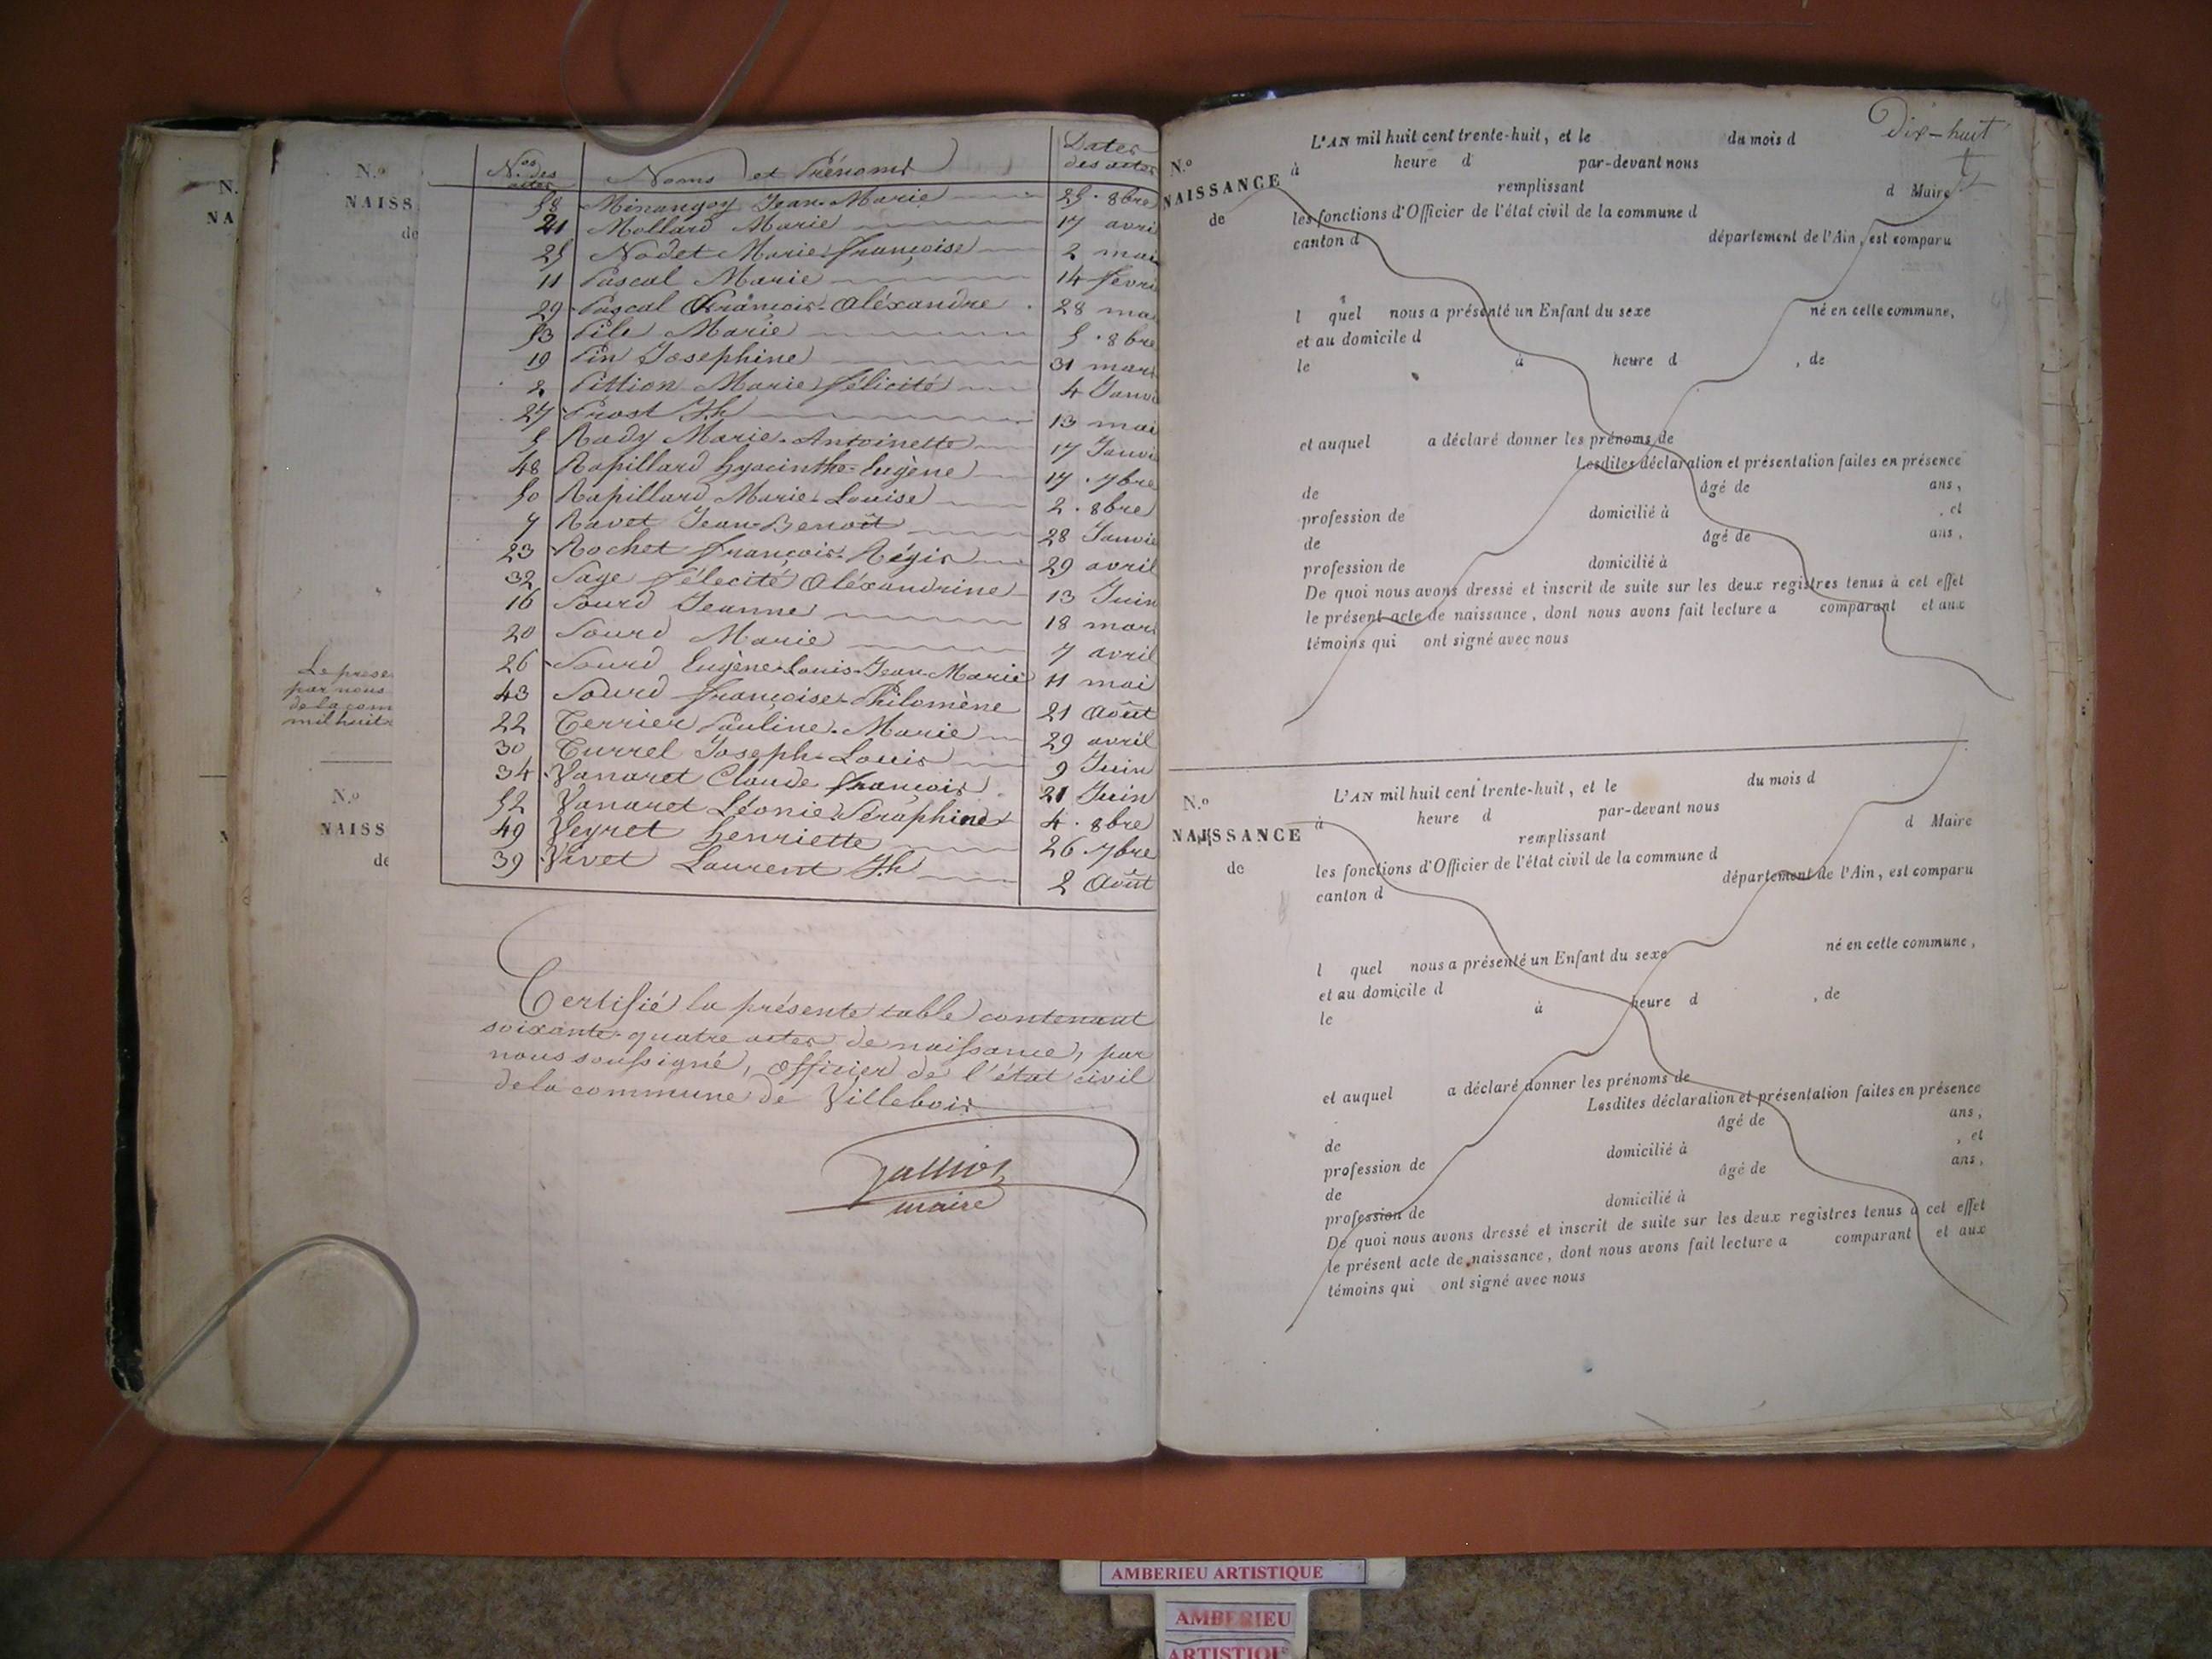 N.
NA
N.º
NAISS
de
Le prese
par nous
de la com
mil huit
N.º
NAISS
de
Nos des actes Noms et Prénoms Dates des actes
58 Minangoy Jean-Marie 25. 8bre
21 Mollard Marie 17 avri
25 Nodet Marie françoise 2 mai
11 Pascal Marie 14 fevri
29 Pascal François-Aléxandre 28 mai
53 Pile Marie 5. 8bre
19 Pin Josephine 31 mars
2 Pittion Marie félicité 4 Janvi
27 Prost Jh 13 mai
5 Rady Marie-Antoinette 17 Janvi
48 Rapillard hyacinthe-Eugène 17. 7bre
50 Rapillard Marie-Louise 2. 8bre
7 Ravet Jean-Benoît 28 Janvie
23 Rochet françois-Régis 29 avril
32 Sage félecité Aléxandrine 13 Juin
16 Sourd Jeanne 18 mars
20 Sourd Marie 7 avril
26 Sourd Eugène-Louis-Jean-Marie 11 mai
43 Sourd françoise-Philomène 21 Août
22 Terrier Pauline-Marie 29 avril
30 Turrel Joseph-Louis 9 Juin
34 Vanaret Claude françois 21 Juin
52 Vanaret Léonie Séraphine 4. 8bre
49 Veyret henriette 26. 7bre
39 Vivet Laurent Jh 2 Août
Certifié la présente table contenant
soixante-quatre actes de naissance, par
nous soussigné, officier de l'état civil
de la commune de Villebois
maire
Dix-huit
N.º
NAISSANCE
de
L'AN mil huit cent trente-huit, et le du mois d
à heure d par-devant nous
remplissant d Maire
les fonctions d'Officier de l'état civil de la commune d
canton d département de l'Ain, est comparu
l quel nous a présenté un Enfant du sexe né en cette commune,
et au domicile d
le à heure d , de
et auquel a déclaré donner les prénoms de
Lesdites déclaration et présentation faites en présence
de âgé de ans,
profession de domicilié à , et
de âgé de ans,
profession de domicilié à
De quoi nous avons dressé et inscrit de suite sur les deux registres tenus à cet effet
le présent acte de naissance, dont nous avons fait lecture a comparant et aux
témoins qui ont signé avec nous
N.º
NAISSANCE
de
L'AN mil huit cent trente-huit, et le du mois d
à heure d par-devant nous
remplissant d Maire
les fonctions d'Officier de l'état civil de la commune d
canton d département de l'Ain, est comparu
l quel nous a présenté un Enfant du sexe né en cette commune,
et au domicile d
le à heure d , de
et auquel a déclaré donner les prénoms de
Lesdites déclaration et présentation faites en présence
de âgé de ans,
profession de domicilié à , et
de âgé de ans,
profession de domicilié à
De quoi nous avons dressé et inscrit de suite sur les deux registres tenus à cet effet
le présent acte de naissance, dont nous avons fait lecture a comparant et aux
témoins qui ont signé avec nous
AMBERIEU ARTISTIQUE
AMBERIEU
ARTISTIQUE